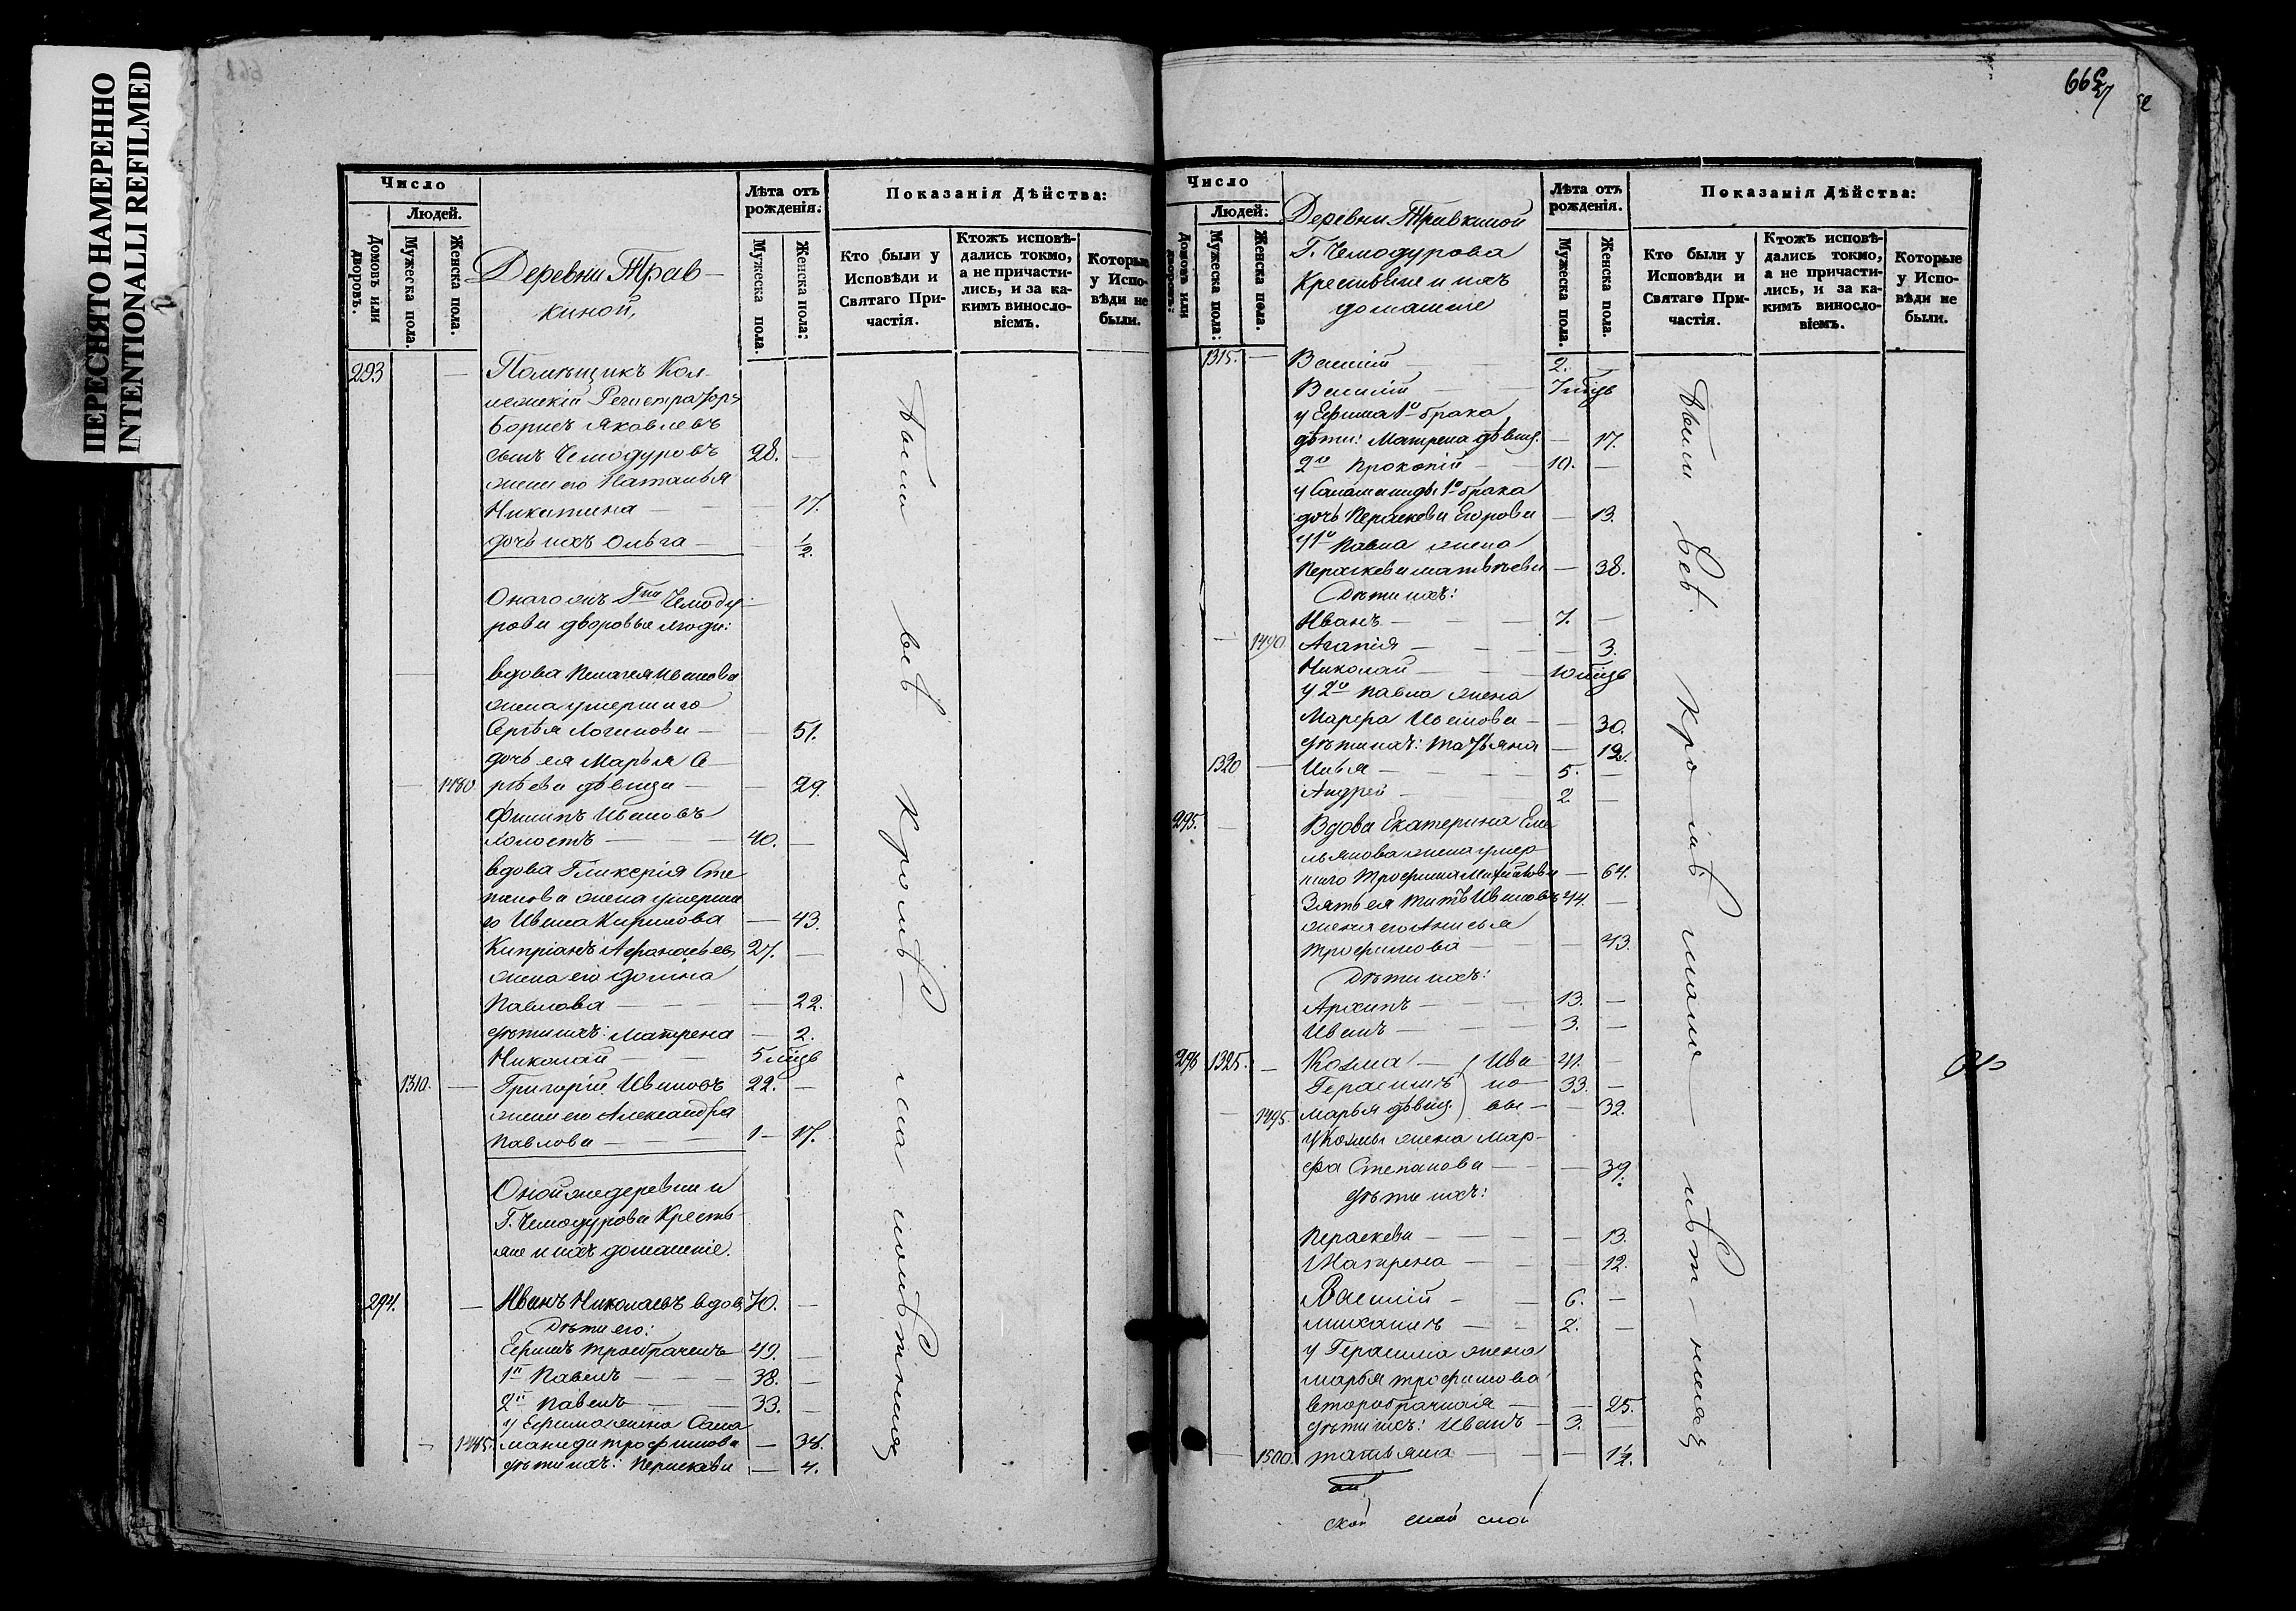 ПЕРЕСНЯТО НАМЕРЕННО
INTENTIONALLI REFILMED
Число
Людей.
Домовъ или дворовъ.
Мужеска пола.
Женска пола.
Деревни Трав-
киной,
Лѣта отъ рожденія:
Мужеска пола.
Женска пола:
Показанія Дѣйства:
Кто были у Исповѣди и Святаго При-частія.
Ктожъ исповѣ-дались токмо, а не причасти-лись, и за ка-кимъ виносло-віемъ.
Которые у Испо-вѣди не были.
293 — Помѣщикъ Кол-
лежскій Регистраторъ
Борисъ Яковлевъ
сынъ Чемодуровъ 28. —
жена его Наталья
Никитина — — 17.
дочь ихъ Ольга — — 1/2.
Онаго жъ Г-на Чемоду-
рова дворовые люди:
вдова Пелагея Иванова
жена умершаго
Сергѣя Логинова — — 51.
дочь ея Марья Се-
— 1480 ргѣева дѣвица — — 29.
Филипъ Ивановъ
холостъ — 40. —
вдова Гликерія Сте
панова жена умерша
го Ивана Кирилова — 43.
Кипріанъ Афанасьевъ 27. —
жена его
Павлова — — 22.
дѣти ихъ: Матрена — 2.
Николай — 5 мѣся
1310. — Григорій Ивановъ 22. —
жена его Александра
Павлова — 17.
Оной же деревни и
Г. Чемодурова Кресть-
яне и ихъ домашніе.
294. — Иванъ Николаевъ вдов. 70. —
Дѣти его:
Ефимъ троебраченъ 49. —
1й Павелъ — 38. —
2й Павелъ — 33. —
у Ефима жена Сала
— 1485. манида Трофимова — 38.
дѣти ихъ: Пераскева — 4.
были всѣ кромѣ — малолѣтнихъ
Число
Людей:
Домовъ или дворовъ:
Мужеска пола:
Женска пола.
Деревни Травкиной
Г. Чемодурова
Крестьяне и ихъ
домашніе
Лѣта отъ рожденія.
Мужеска пола.
Женска пола.
Показанія Дѣйства:
Кто были у Исповѣди и Святаго При-частія.
Ктожъ исповѣ-дались токмо, а не причасти-лись, и за ка-кимъ виносло-віемъ.
Которые у Испо-вѣди не были.
1315. — Василій — 2. —
Василій — 7 мѣся
у Ефима 1го брака
дѣти: Матрена дѣвиц. — 17.
2го Прокопій — 10. —
у Саламаниды 1го брака
дочь Пераскева Егорова — 13.
У 1го Павла жена
Пераскева Матвѣева — 38.
Дѣти ихъ:
Иванъ — 7. —
— 1490. Агапія — — 3.
Николай — 10 мѣся
у 2го Павла жена
Марфа Иванова — — 30.
дѣти ихъ: Татьяна — 12.
1320 — Илья — 5. —
Андрей — 2 —
295. — Вдова Екатерина Еме
льянова жена умер-
шаго Трофима — 64.
Зять ея Титъ Ивановъ 44. —
жена его Анисья
Трофимова — — 43.
Дѣти ихъ:
Архипъ — 13. —
Иванъ — 3. —
296 1325. — Козма — Ива 41. —
Герасимъ но- 33. —
— 1495. Марья дѣвиц. вы — — 32.
у Козмы жена Мар-
фа Степанова — — 39.
дѣти ихъ:
Пераскева — — 13.
Матрена — — 12.
Василій — 6. —
Михаилъ — 2. —
у Герасима жена
Марья Трофимова
второбрачная — — 25.
дѣти ихъ: Иванъ — 3.
— 1500. Татьяна — — 1½.
были всѣ. кромѣ мало — лѣт-нихъ